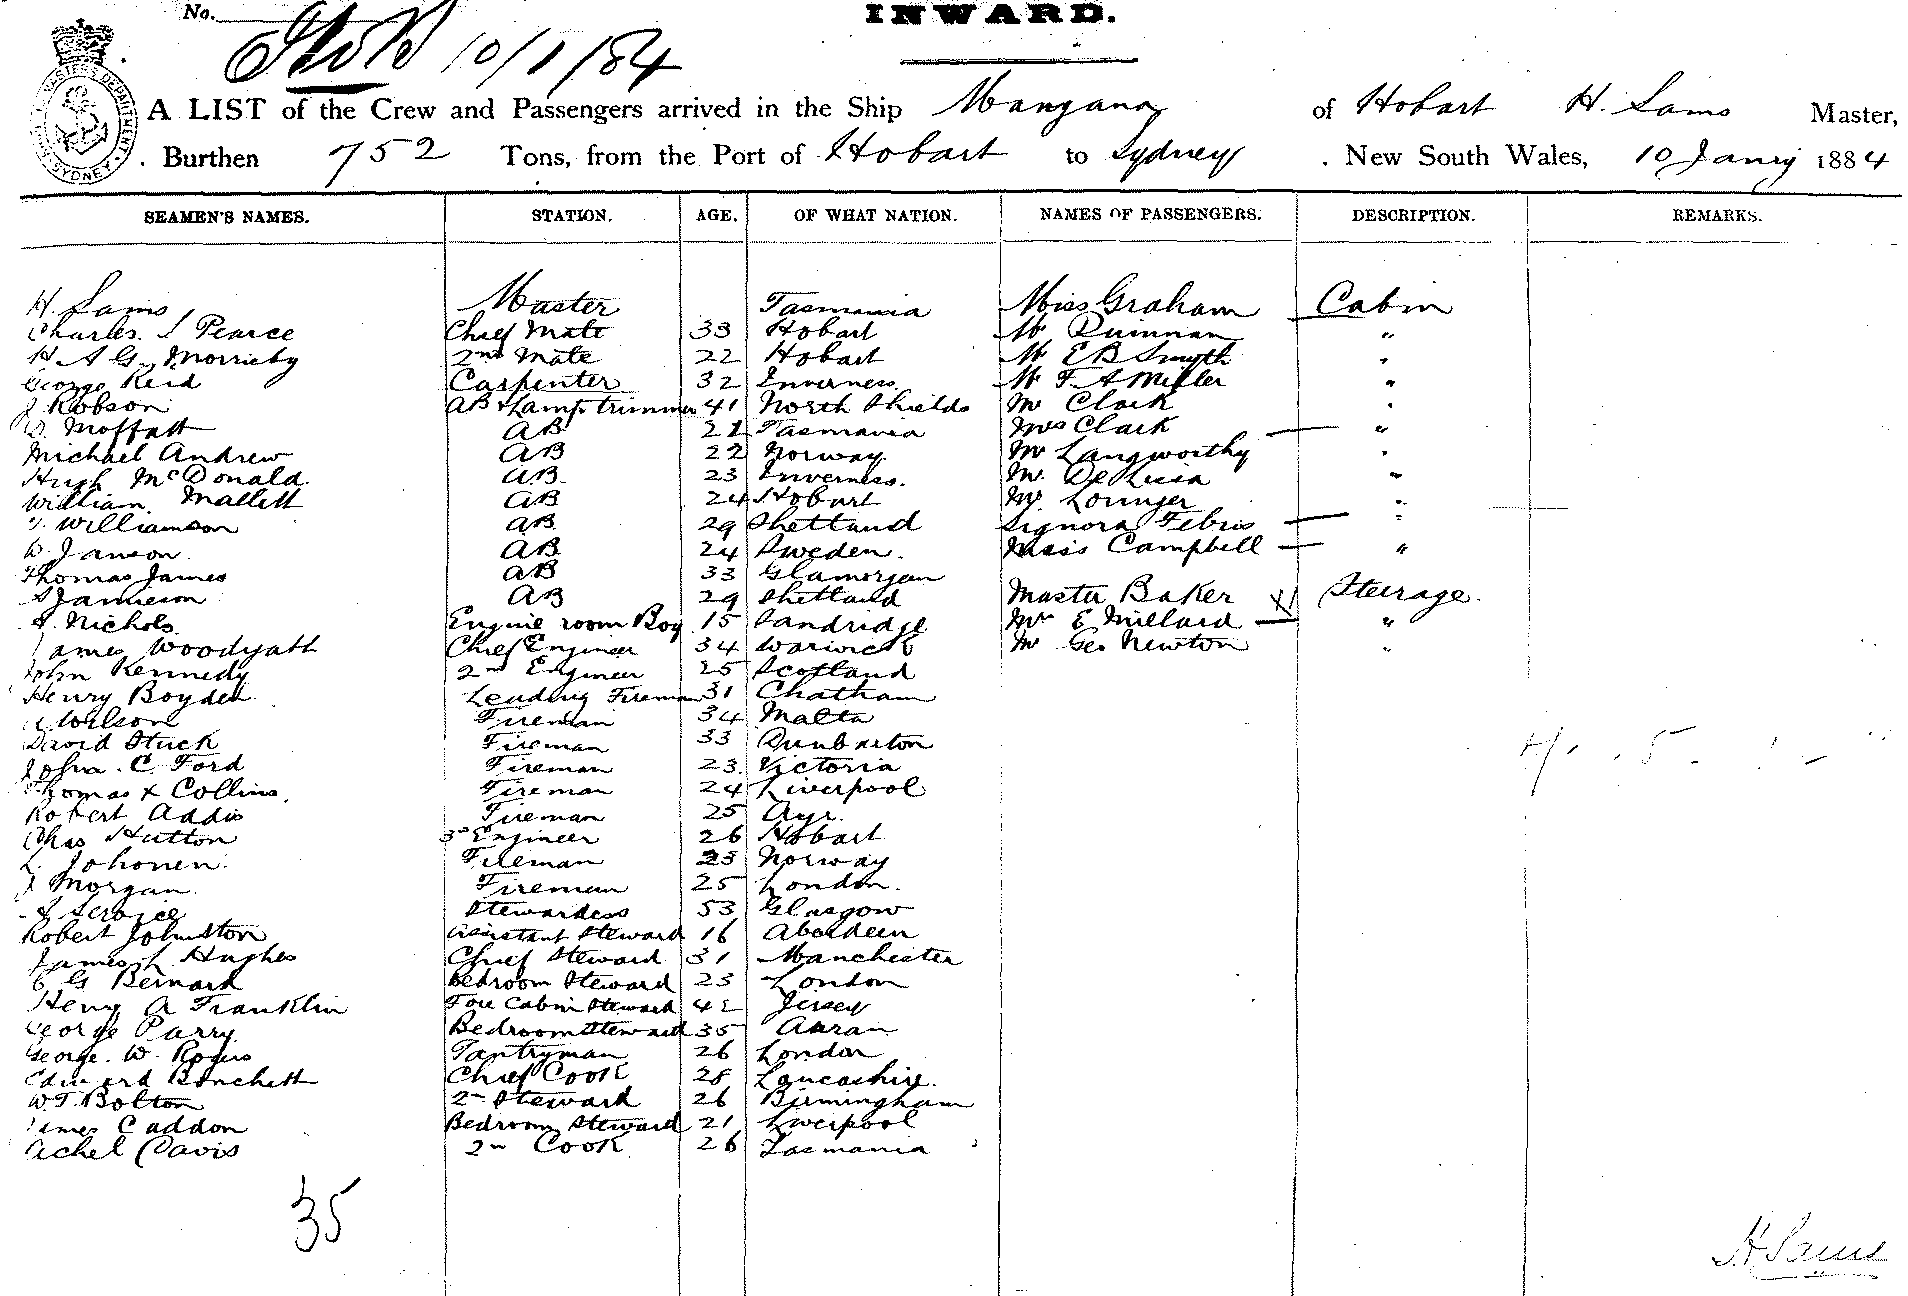 No.
INWARD.
10/1/84
A LIST of the Crew and Passengers arrived in the Ship Mangana of Hobart H. Sams Master,
Burthen 752 Tons, from the Port of Hobart to Sydney New South Wales, 10 Jany 1884
SEAMEN'S NAMES. STATION. AGE. OF WHAT NATION. NAMES OF PASSENGERS. DESCRIPTION. REMARKS.
H. Sams Master Tasmania Miss Graham Cabin
Charles S Pearce Chief Mate 33 Hobart Mr Quinnan "
H A G Morrisby 2nd Mate 22 Hobart Mr E B Smyth "
George Reid Carpenter 32 Inverness Mr F. A Miller "
J Robson AB & Lamptrimmer 41 North Shields Mr Clark "
Moffatt AB 21 Tasmania Mrs Clark "
Michael Andrew AB 22 Norway Mr Langworthy "
Hugh McDonald AB 23 Inverness. Mr De Lissa "
William Mallett AB 24 Hobart Mr Loringer "
Williamson AB 29 Shetland Signora Febris "
W. Janson AB 24 Sweden. Miss Campbell "
Thomas James AB 33 Glamorgan
Jamieson AB 29 Shetland Master Baker Steerage.
Nichols Engine room Boy 15 Sandridge E Millard "
James Woodyatt Chief Engineer 34 Warwick Mr Geo Newton "
John Kennedy 2nd Engineer 25 Scotland
Henry Boyden Leading Fireman 31 Chatham
Wilson Fireman 34 Malta
David Stuck Fireman 33 Dunbarton
John. C Ford Fireman 23 Victoria
Thomas Collins Fireman 24 Liverpool
Robert Addis Fireman 25 Ayr.
Chas Hutton 3rd Engineer 26 Hobart
L. Johonen Fireman 23 Norway
J Morgan Fireman 25 London.
Service Stewardess 53 Glasgow
Robert Johnston Assistant Steward 16 Aberdeen
James Hughes Chief Steward 31 Manchester
G Bernard Bedroom Steward 23 London
Henry A Franklin Fore Cabin Steward 42 Jersey
George Parry Bedroom Steward 35 Arran
George. W. Rogers Pantryman 26 London
Edward Bonchett Chief Cook 28 Lancashire.
W. T. Bolton 2nd Steward 26 Birmingham
James Caddon Bedroom Steward 21 Liverpool
Achel Davis 2nd Cook 26 Tasmania
35
H Sams